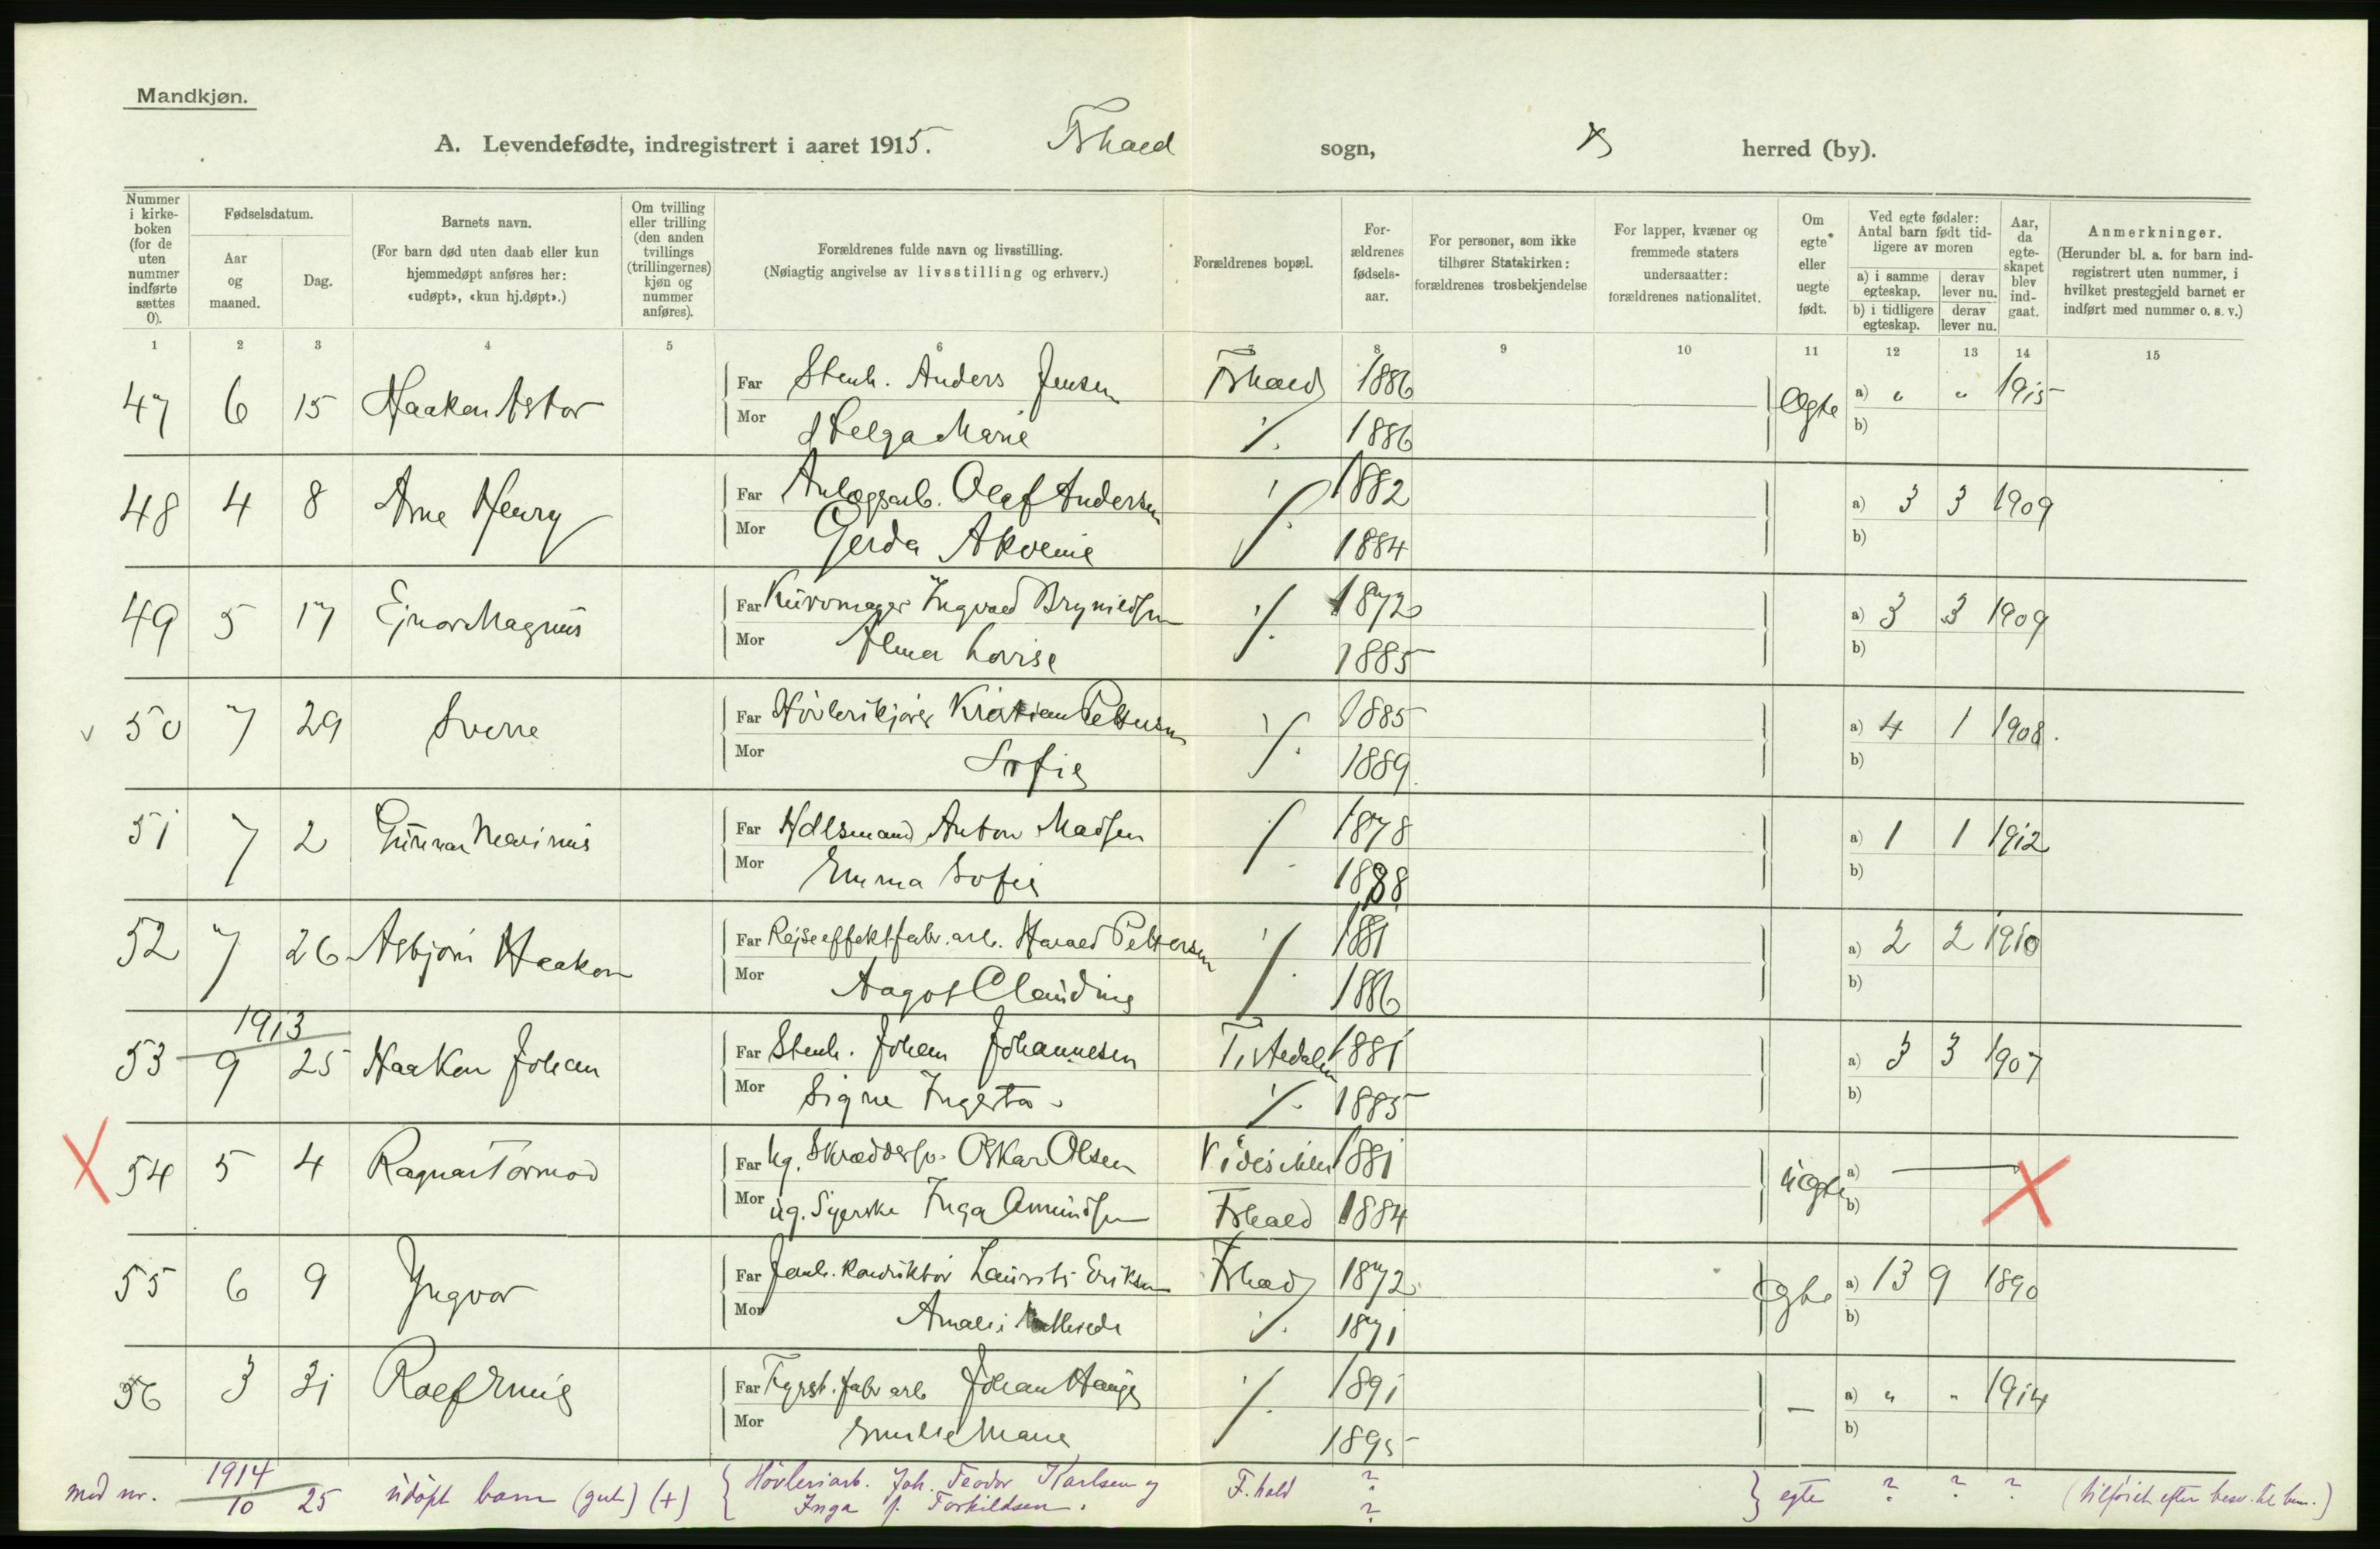 Mandkjøn.
A. Levendefødte, indregistrert i aaret 1915. Fr.hald sogn, herred (by).
Nummer i kirke-boken (for de uten nummer indførte sættes 0).
Fødselsdatum.
Aar og maaned.
Dag.
Barnets navn.
(For barn død uten daab eller kun hjemmedøpt anføres her: «udøpt», «kun hj.døpt».)
Om tvilling eller trilling (den anden tvillings (trillingernes) kjøn og nummer anføres).
Forældrenes fulde navn og livsstilling.
(Nøiagtig angivelse av livsstilling og erhverv.)
Forældrenes bopæl.
For-ældrenes fødsels-aar.
For personer, som ikke tilhører Statskirken: forældrenes trosbekjendelse
For lapper, kvæner og fremmede staters undersaatter: forældrenes nationalitet.
Om egte eller uegte født.
Ved egte fødsler: Antal barn født tid-ligere av moren
a) i samme egteskap. derav lever nu.
b) i tidligere egteskap. derav lever nu.
Aar, da egte-skapet blev ind-gaat.
Anmerkninger.
(Herunder bl. a. for barn ind-registrert uten nummer, i hvilket prestegjeld barnet er indført med nummer o. s. v.)
1 2 3 4 5 6 7 8 9 10 11 12 13 14 15
47 6 15 Haakon Astor Far Stenh. Anders Jensen Fr.hald 1886 Ægte a) " " 1915
Mor Helga Marie ./. 1886 b)
48 4 8 Arne Henry Far Anlægsarb. Olaf Andersen ./. 1882 a) 3 3 1909
Mor Gerda 1884 b)
49 5 17 Ejnar Magnus Far Kurvmager Ingvald Brynildsen ./. 1872 a) 3 3 1909
Mor Alma Lovise 1885 b)
50 7 29 Sverre Far Kristian Pettersen ./. 1885 a) 4 1 1908.
Mor Sofie 1889. b)
51 7 2 Gunnar Marinus Far Hdlsmand Anton Madsen ./. 1878 a) 1 1 1912
Mor Emma Sofie 1888 b)
52 7 26 Asbjørn Haakon Far Rejseeffektfabr.arb. Harald Pettersen ./. 1881 a) 2 2 1910
Mor Aagot Claudine 1886 b)
1913
53 9 25 Haakon Johan Far Stenh. Johan Johannesen Tistedalen 1881 a) 3 3 1907
Mor Signe Ingerta ./. 1885 b)
54 5 4 Ragnar Tormod Far Ug. Skræddersv. Oskar Olsen 1881 uægte a)
Mor ug. Syerske Inga Amundsen Fr.hald 1884 b)
55 6 9 Yngvar Far Jernb. konduktør Laurits Eriksen Fr.hald 1872 Ægte a) 13 9 1890
Mor Amalie Mathilde ./. 1871 b)
56 3 31 Rolf Emil Far Fyrst.fabr arb Johan Hauge ./. 1891 — a) " " 1914
Mor Emilie Marie 1895 b)
med nr. 1914 10 25 udøpt barn (gut) (+) Høvleriarb. Joh. Teodor Karlsen og F.hald ? egte ? ? ? (tilføiet efter besv. til bem.)
Inga f. Torkildsen. ?